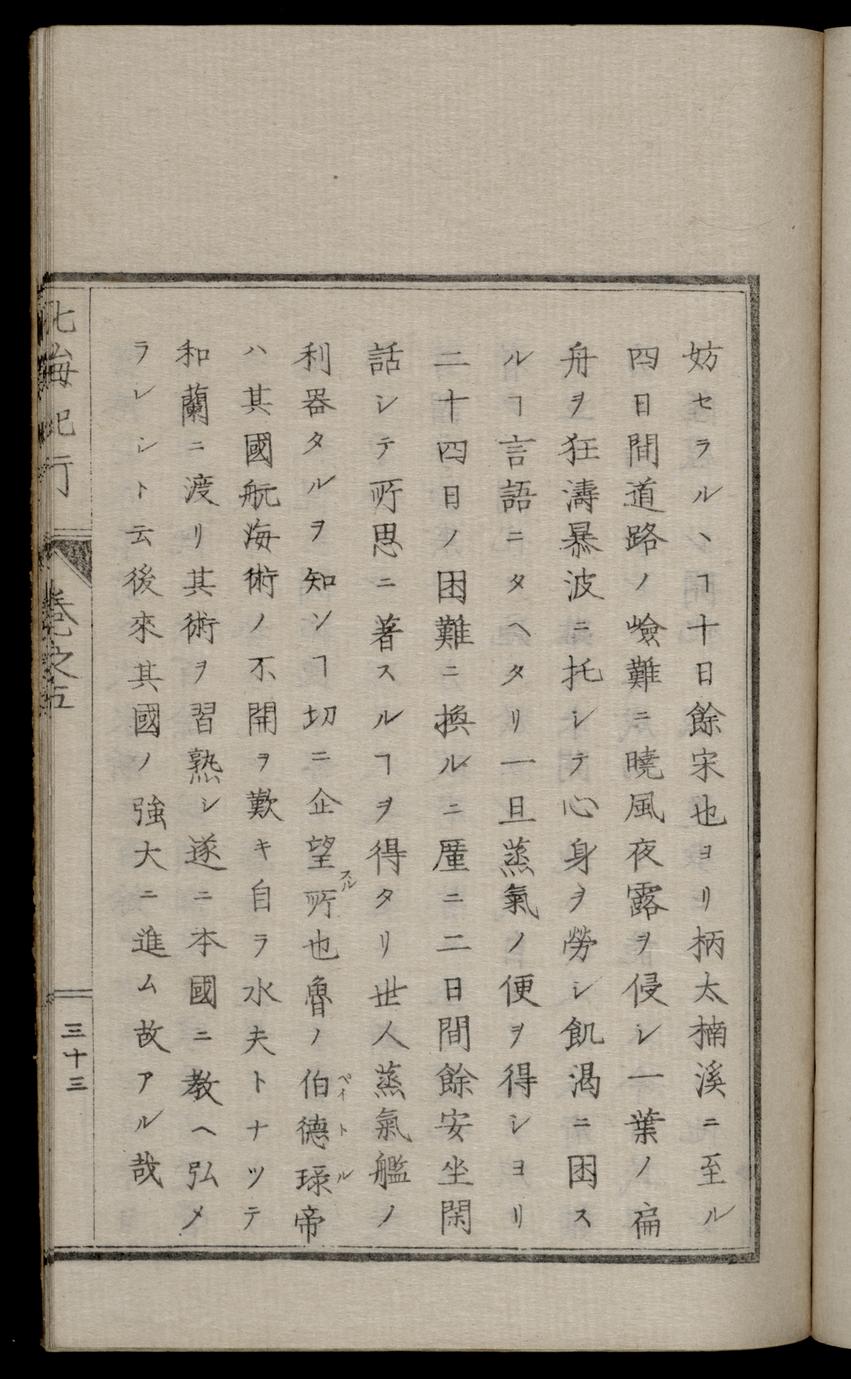 妨セラルヽヿ十日餘宋也ヨリ柄太楠溪ニ至ル
四日間道路ノ嶮難ニ曉風夜露ヲ侵シ一葉ノ扁
舟ヲ狂濤暴波ニ托シテ心身ヲ勞シ飢渴ニ困ス
ルヿ言語ニタヘタリ一旦蒸氣ノ便ヲ得シヨリ
二十四日ノ困難ニ換ルニ厪ニ二日間餘安坐閑
話シテ所思ニ著スルヿヲ得タリ世人蒸氣艦ノ
利器タルヲ知ンヿ切ニ企望スル所也魯ノ伯德琭帝
ペイトル
ハ其國航海術ノ不開ヲ歎キ自ラ水夫トナツテ
和蘭ニ渡リ其術ヲ習熟シ遂ニ本國ニ教ヘ弘メ
ラレシト云後來其國ノ強大ニ進ム故アル哉
北海紀行
卷之五
三十三